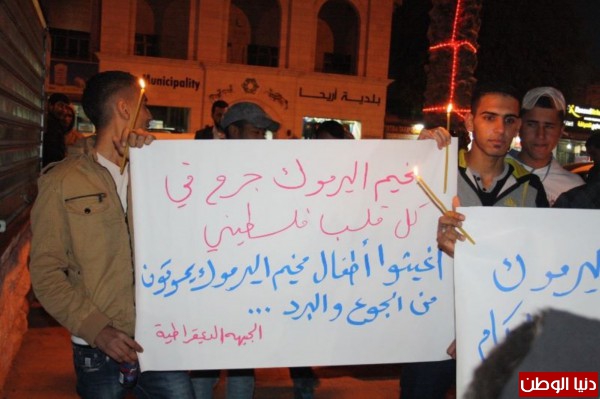 Municipality
بلدية أريحا
مخيم اليرموك جرح في
كل قلب فلسطيني
أغيثوا أطفال مخيم اليرموك يموتون
من الجوع والبرد ...
الجبهة الديمقراطية
اليرموك
دنيا الوطن